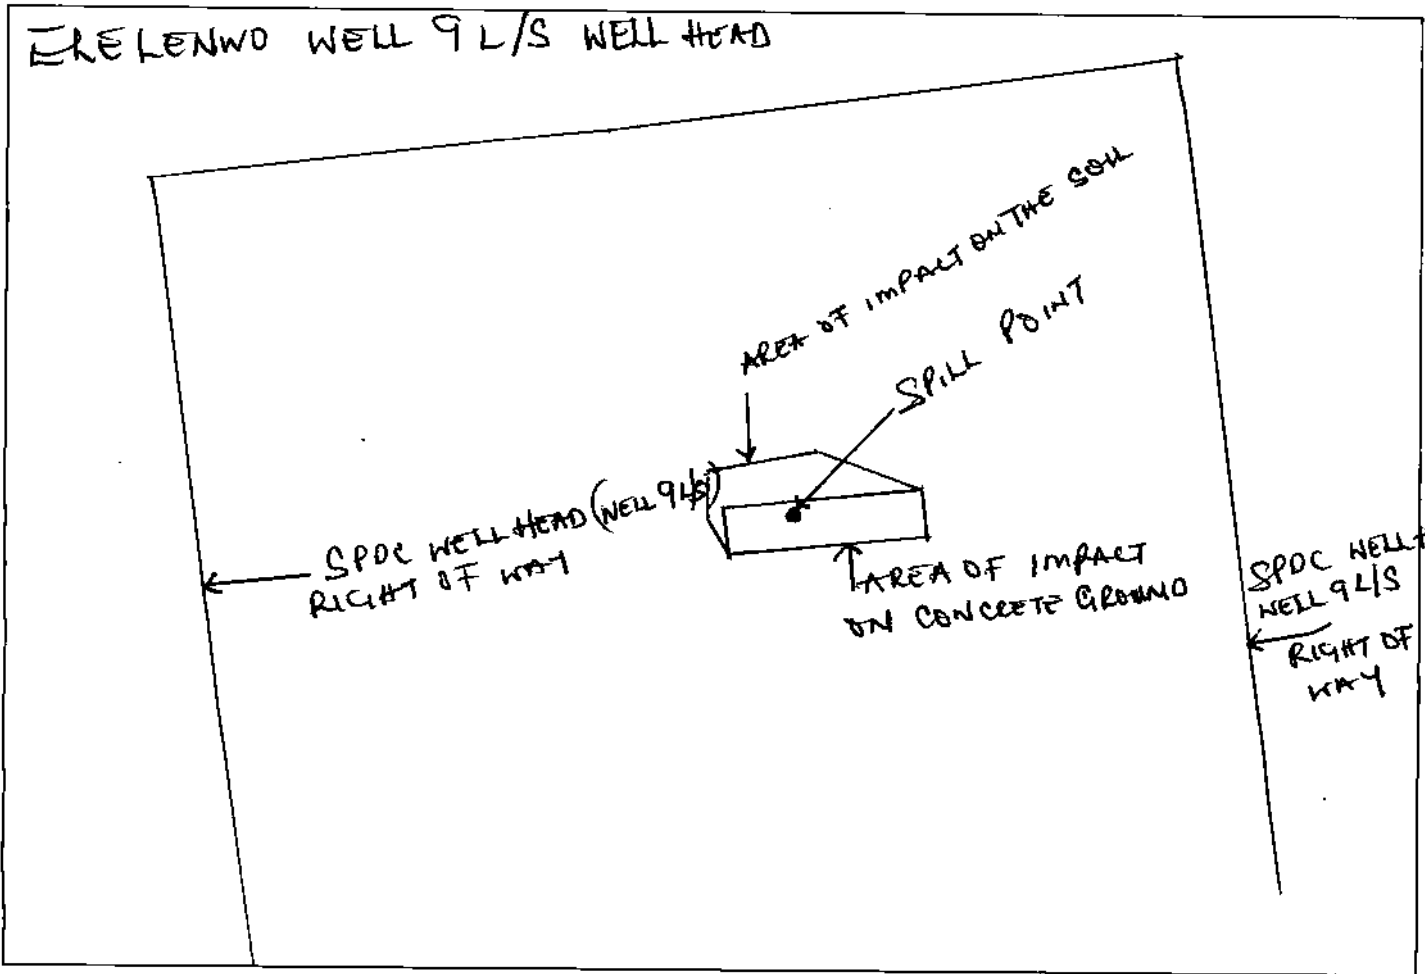 ELELENWO WELL 9 L/S WELL HEAD
AREA OF IMPACT ON THE SOIL
SPILL POINT
SPDC WELL HEAD (WELL 9 L/S)
RIGHT OF WAY
AREA OF IMPACT
ON CONCRETE GROUND
SPDC WELL
WELL 9 L/S
RIGHT OF
WAY